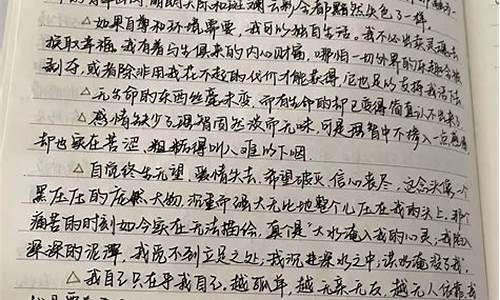 晴朗的天际和斑斓云彩会都黯然失色了一样。
△如果自尊和环境需要,我可以独自生活。我不必出卖灵魂去
换取幸福。我有着与生俱来的内心财富,哪怕一切外界的乐趣全被
剥夺,或者除非用我付不起的代价才能获得,它也足以支持我活下去。
△无生命的东西丝毫未变,而有生命的却已变得简直认不出来了。
△感情缺少了理智固然淡而无味,可是理智中不掺入一点感情,
却也实在苦涩、粗糙得叫人难以下咽。
△自觉终生无望,爱情失去,希望破灭,信心丧尽,这念头像一个
黑压压的庞然大物,沉重而强大无比地整个儿压在我的头上,那个
痛苦的时刻如今实在无法描绘,真个是“大水淹入我的心灵,我陷入
深深的泥潭,我觅不到立足之处;我沉进深水之中;洪水淹没了我。
△我自己只在乎我自己,越孤单,越无亲无友,越无人依靠,我